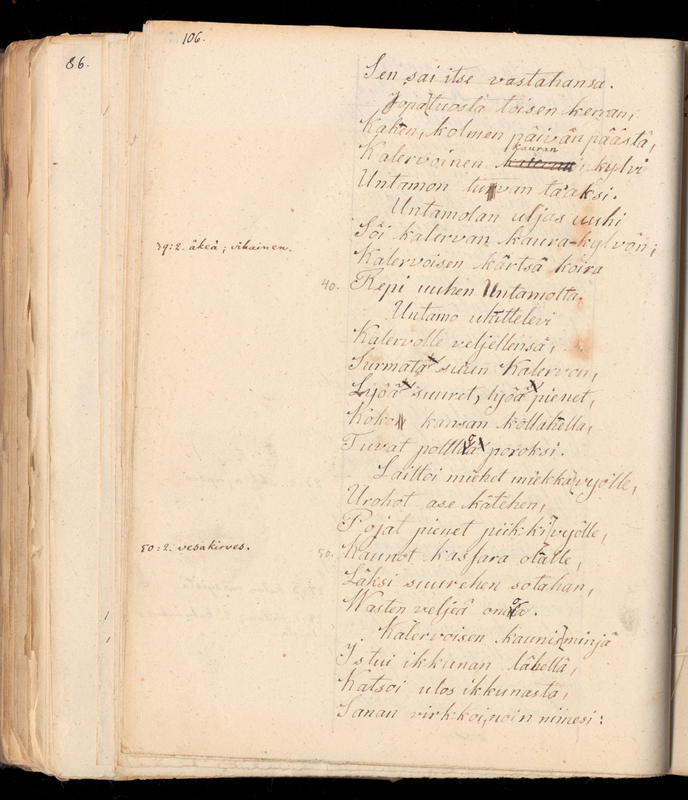 86.
106.
Sen sai itse vastahansa.
Jopa tuosta toisen kerran,
Kahen, kolmen päivän päästä,
kauran
Kalervoinen kateran, kylvi
Untamon tuvan taaksi.
Untamolan uljas uuhi
39:2. äkeä; vihainen.
Söi kalervan kaura-kylvön;
Kalervoisen kärtsä koira
40. Repi uuhen Untamolta.
Untamo uhittelevi
Kalervolle veljellensä,
Surmata suun Kalervon,
Lyöä suuret, lyöä pienet,
Koko kansan kollahella,
Tuvat polttoa poroksi.
Laittoi miehet miekka vyölle,
Urohot ase kätehen,
Pojat pienet piik-ki vyölle,
50:2. vesakirves.
50. Kaunot kassara olalle,
Läksi suurehen sotahan,
Wasten veljeä omoa.
Kalervoisen kaunis minjä
Istui ikkunan lähellä,
Katsoi ulos ikkunasta,
Sanan virkkoi, noin nimesi: